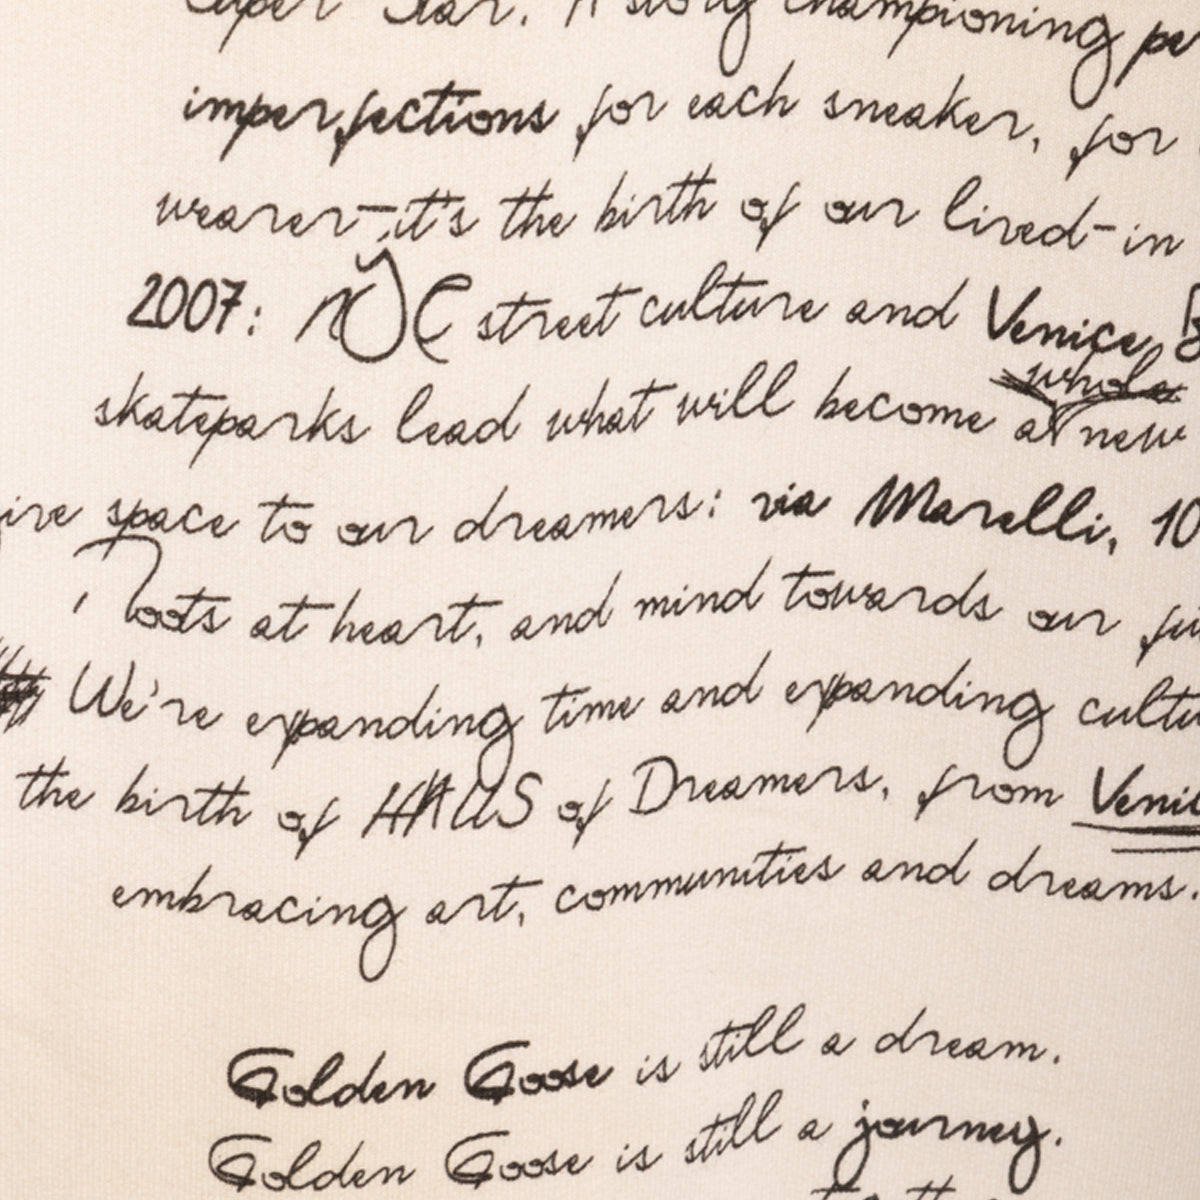 Super Star. A story championing
imperfections for each sneaker, for
wearer-it's the birth of our lived-in
2007: street culture and Venice
skateparks lead what will become a whole new
space to our dreamers: via Marelli, 10
Roots at heart, and mind towards our
We're expanding time and expanding
the birth of HAUS of Dreamers, from
embracing art, communities and dreams.
Golden Goose is still a dream.
Golden Goose is still a journey.